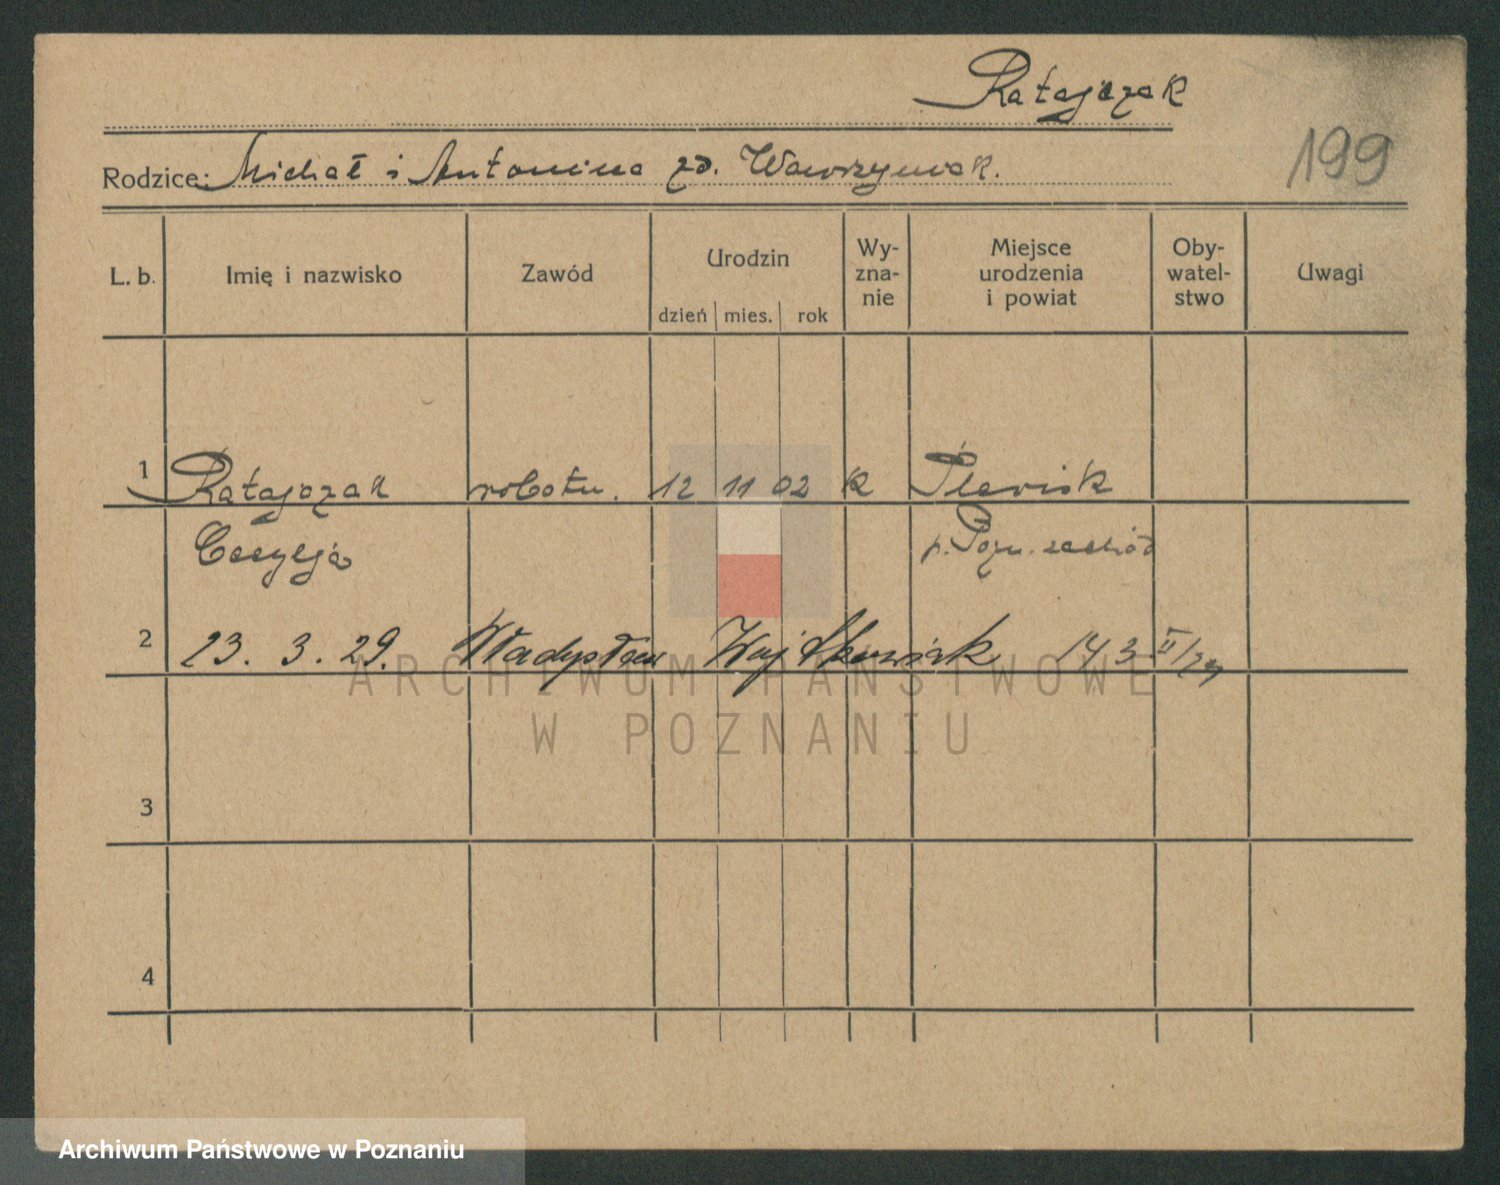 Ratajczak
199
Rodzice: Michał i Antonina zd. Wawrzyniak.
L. b. Imię i nazwisko Zawód Urodzin Wy-zna-nie Miejsce urodzenia i powiat Oby-watel-stwo Uwagi
dzień mies. rok
1 Ratajczak robotn. 12 11 02 k Plewisk
Cecylja p. Pozn. zachód
2 23. 3. 29. Władysław Wojtkowiak 143 II/29
ARCHIWUM PAŃSTWOWE
W POZNANIU
3
4
Archiwum Państwowe w Poznaniu